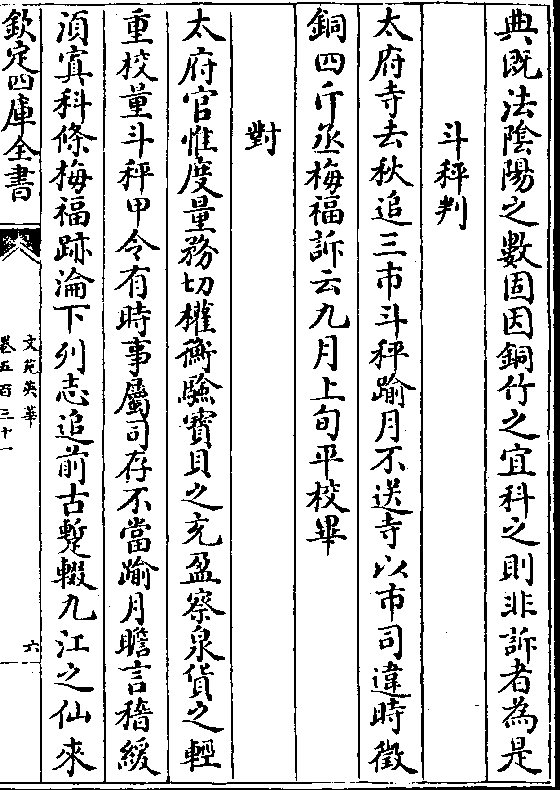 典既法陰陽之數固因銅竹之宜科之則非訴者為是
斗秤判
太府寺去秋追三市斗秤踰月不送寺以市司違時徵
銅四斤丞梅福訴云九月上旬平校畢
對
太府官惟度量務切權衡驗寶貝之充盈察泉貨之輕
重校量斗秤甲令有時事屬司存不當踰月瞻言稽緩
湏寘科條梅福跡淪下列志追前古蹔輟九江之仙來
欽定四庫全書
文苑英華
卷五百三十一
六